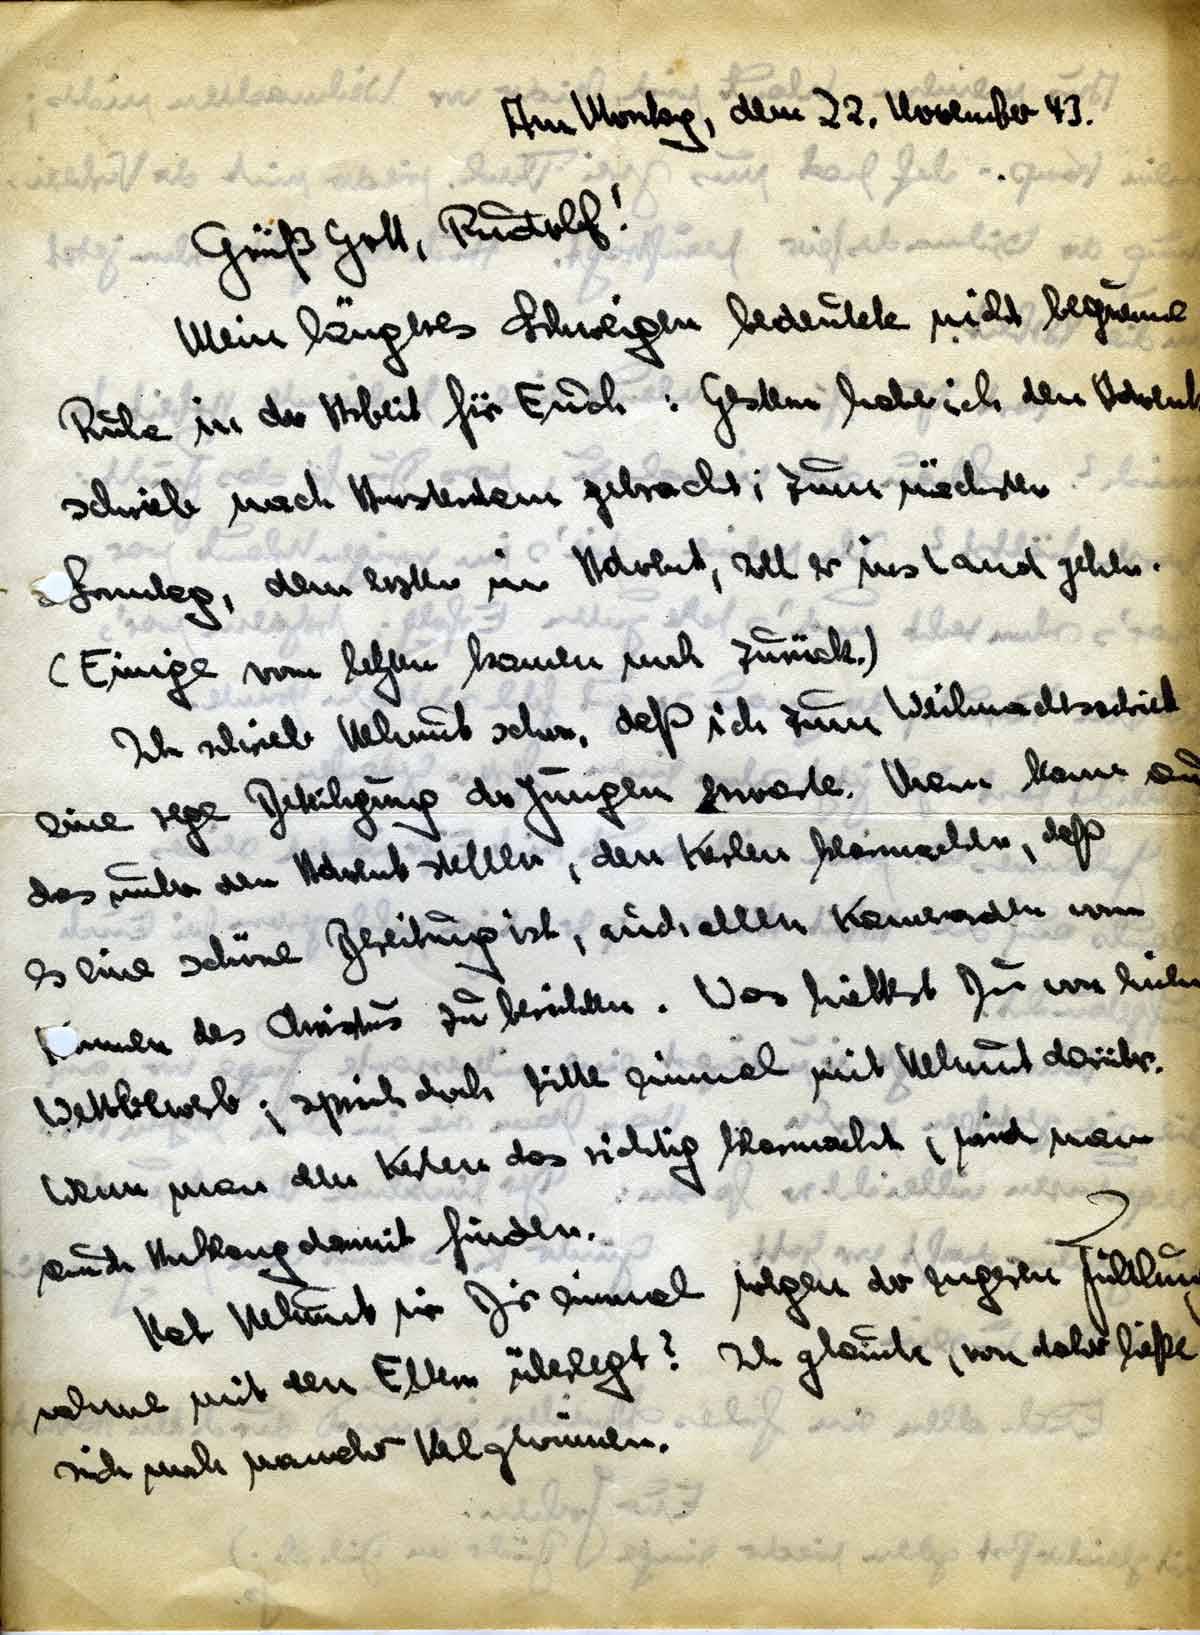 Am Montag, dem 22. November 43.
Grüß Gott, Rudolf!
Mein längeres Schweigen bedeutete nicht bequeme
Ruhe in der Arbeit für Euch: Gestern habe ich den Advent
schrieb nach Amsterdam gebracht; zum nächsten
Sonntag, dem ersten im Advent, soll er ins Land gehen.
(Einige vom letzten kamen noch zurück.)
Ich schrieb Helmut schon, daß ich zum Weihnachtsschrieb
eine rege Beteiligung der Jungen erwarte. Man kann
das unter den Advent stellen, den Kerlen klarmachen, daß
es eine schöne Bereitung ist, auch allen Kameraden vom
Kommen des Christus zu berichten. Was hieltest Du von
Wettbewerb; sprich doch bitte einmal mit Helmut darüber.
Wenn man den Kerlen das richtig klarmacht, wird man
auch Anklang damit finden.
Hat Helmut mir Dir einmal wegen der engeren Fühlung
nahme mit den Eltern überlegt? Ich glaube, von daher ließe
sich noch mancher Kerl gewinnen.